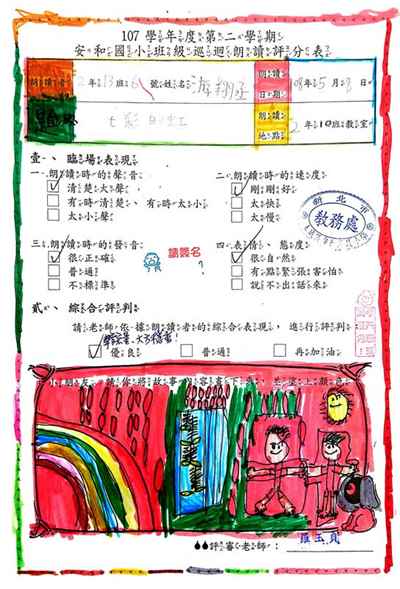 107 學年度第二學期
安和國小班級巡迴朗讀評分表
朗讀者 2年13班 號姓名 游翔丞 朗讀日期 108年5月 日
七彩虹 朗讀地點 2年10班教室
壹、臨場表現
一、朗讀時的聲音
清楚大聲
有時清楚、有時太小
太小聲
二、朗讀時的速度
剛剛好
太快
太慢
新北市
教務處
三、朗讀時的發音
很正確
普通
不標準
請簽名
四、表情、態度
很自然
有點緊張害怕
說不出話來
貳、綜合評判
請老師依據朗讀者的綜合表現,進行評判
優良 普通 再加油
評審老師:羅玉貞